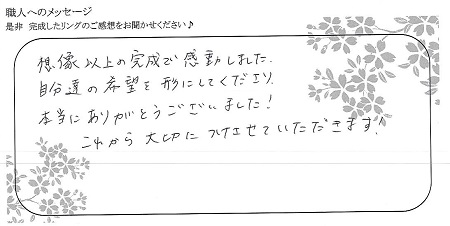 職人へのメッセージ
是非 完成したリングのご感想をお聞かせください♪
想像以上の完成で感動しました.
自分達の希望を形にしてくださり,
本当にありがとうございました!
これから大切につけさせていただきます!